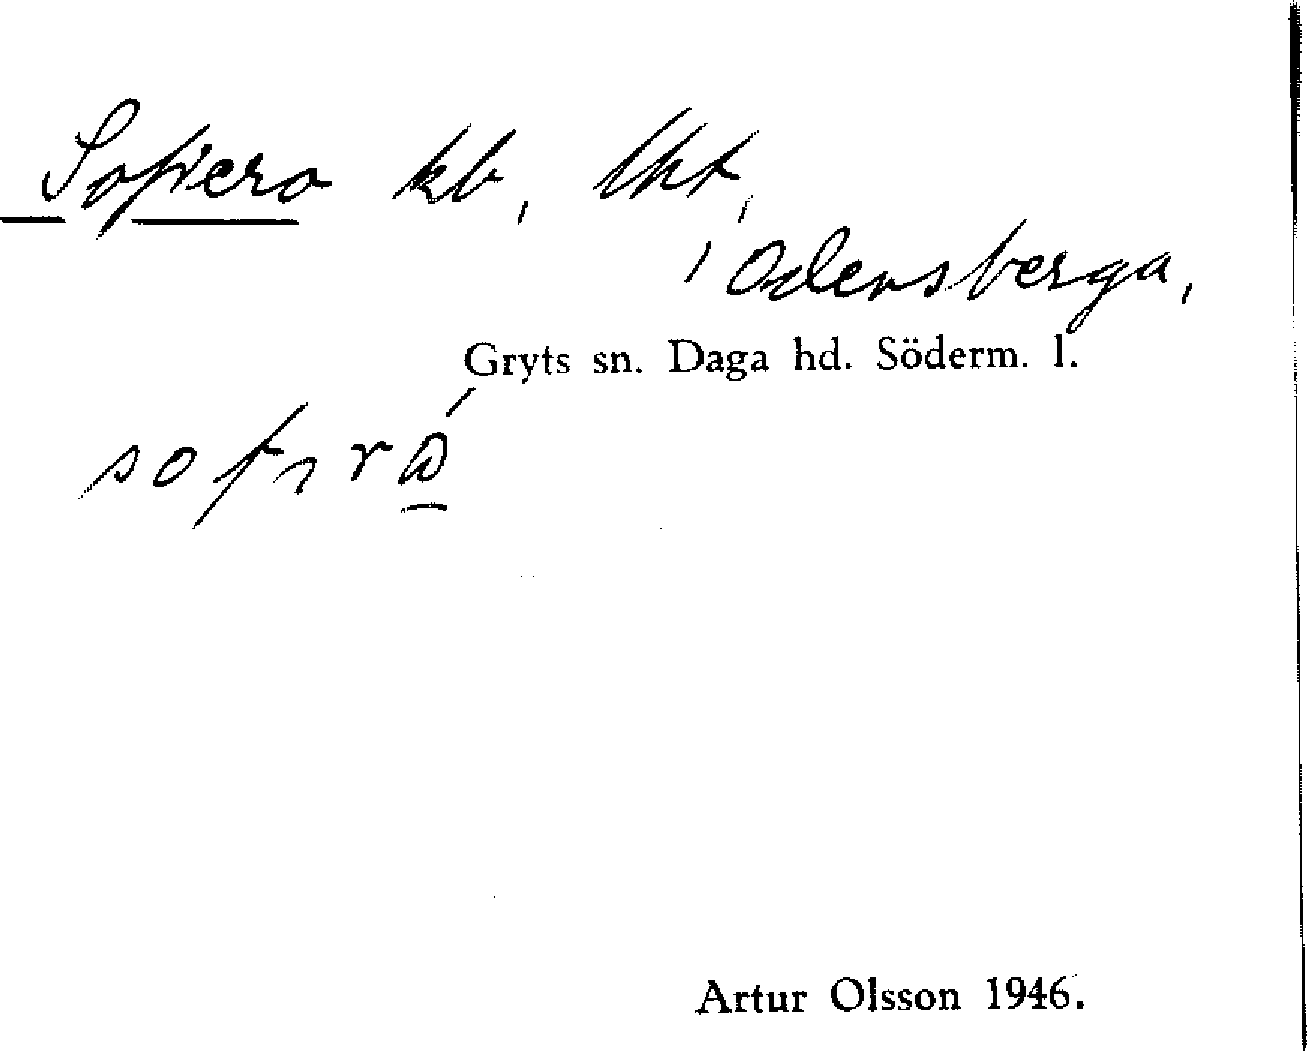 Sofiero kb, lht,
i Odensberga,
Gryts sn. Daga hd. Söderm. l.
Artur Olsson 1946.